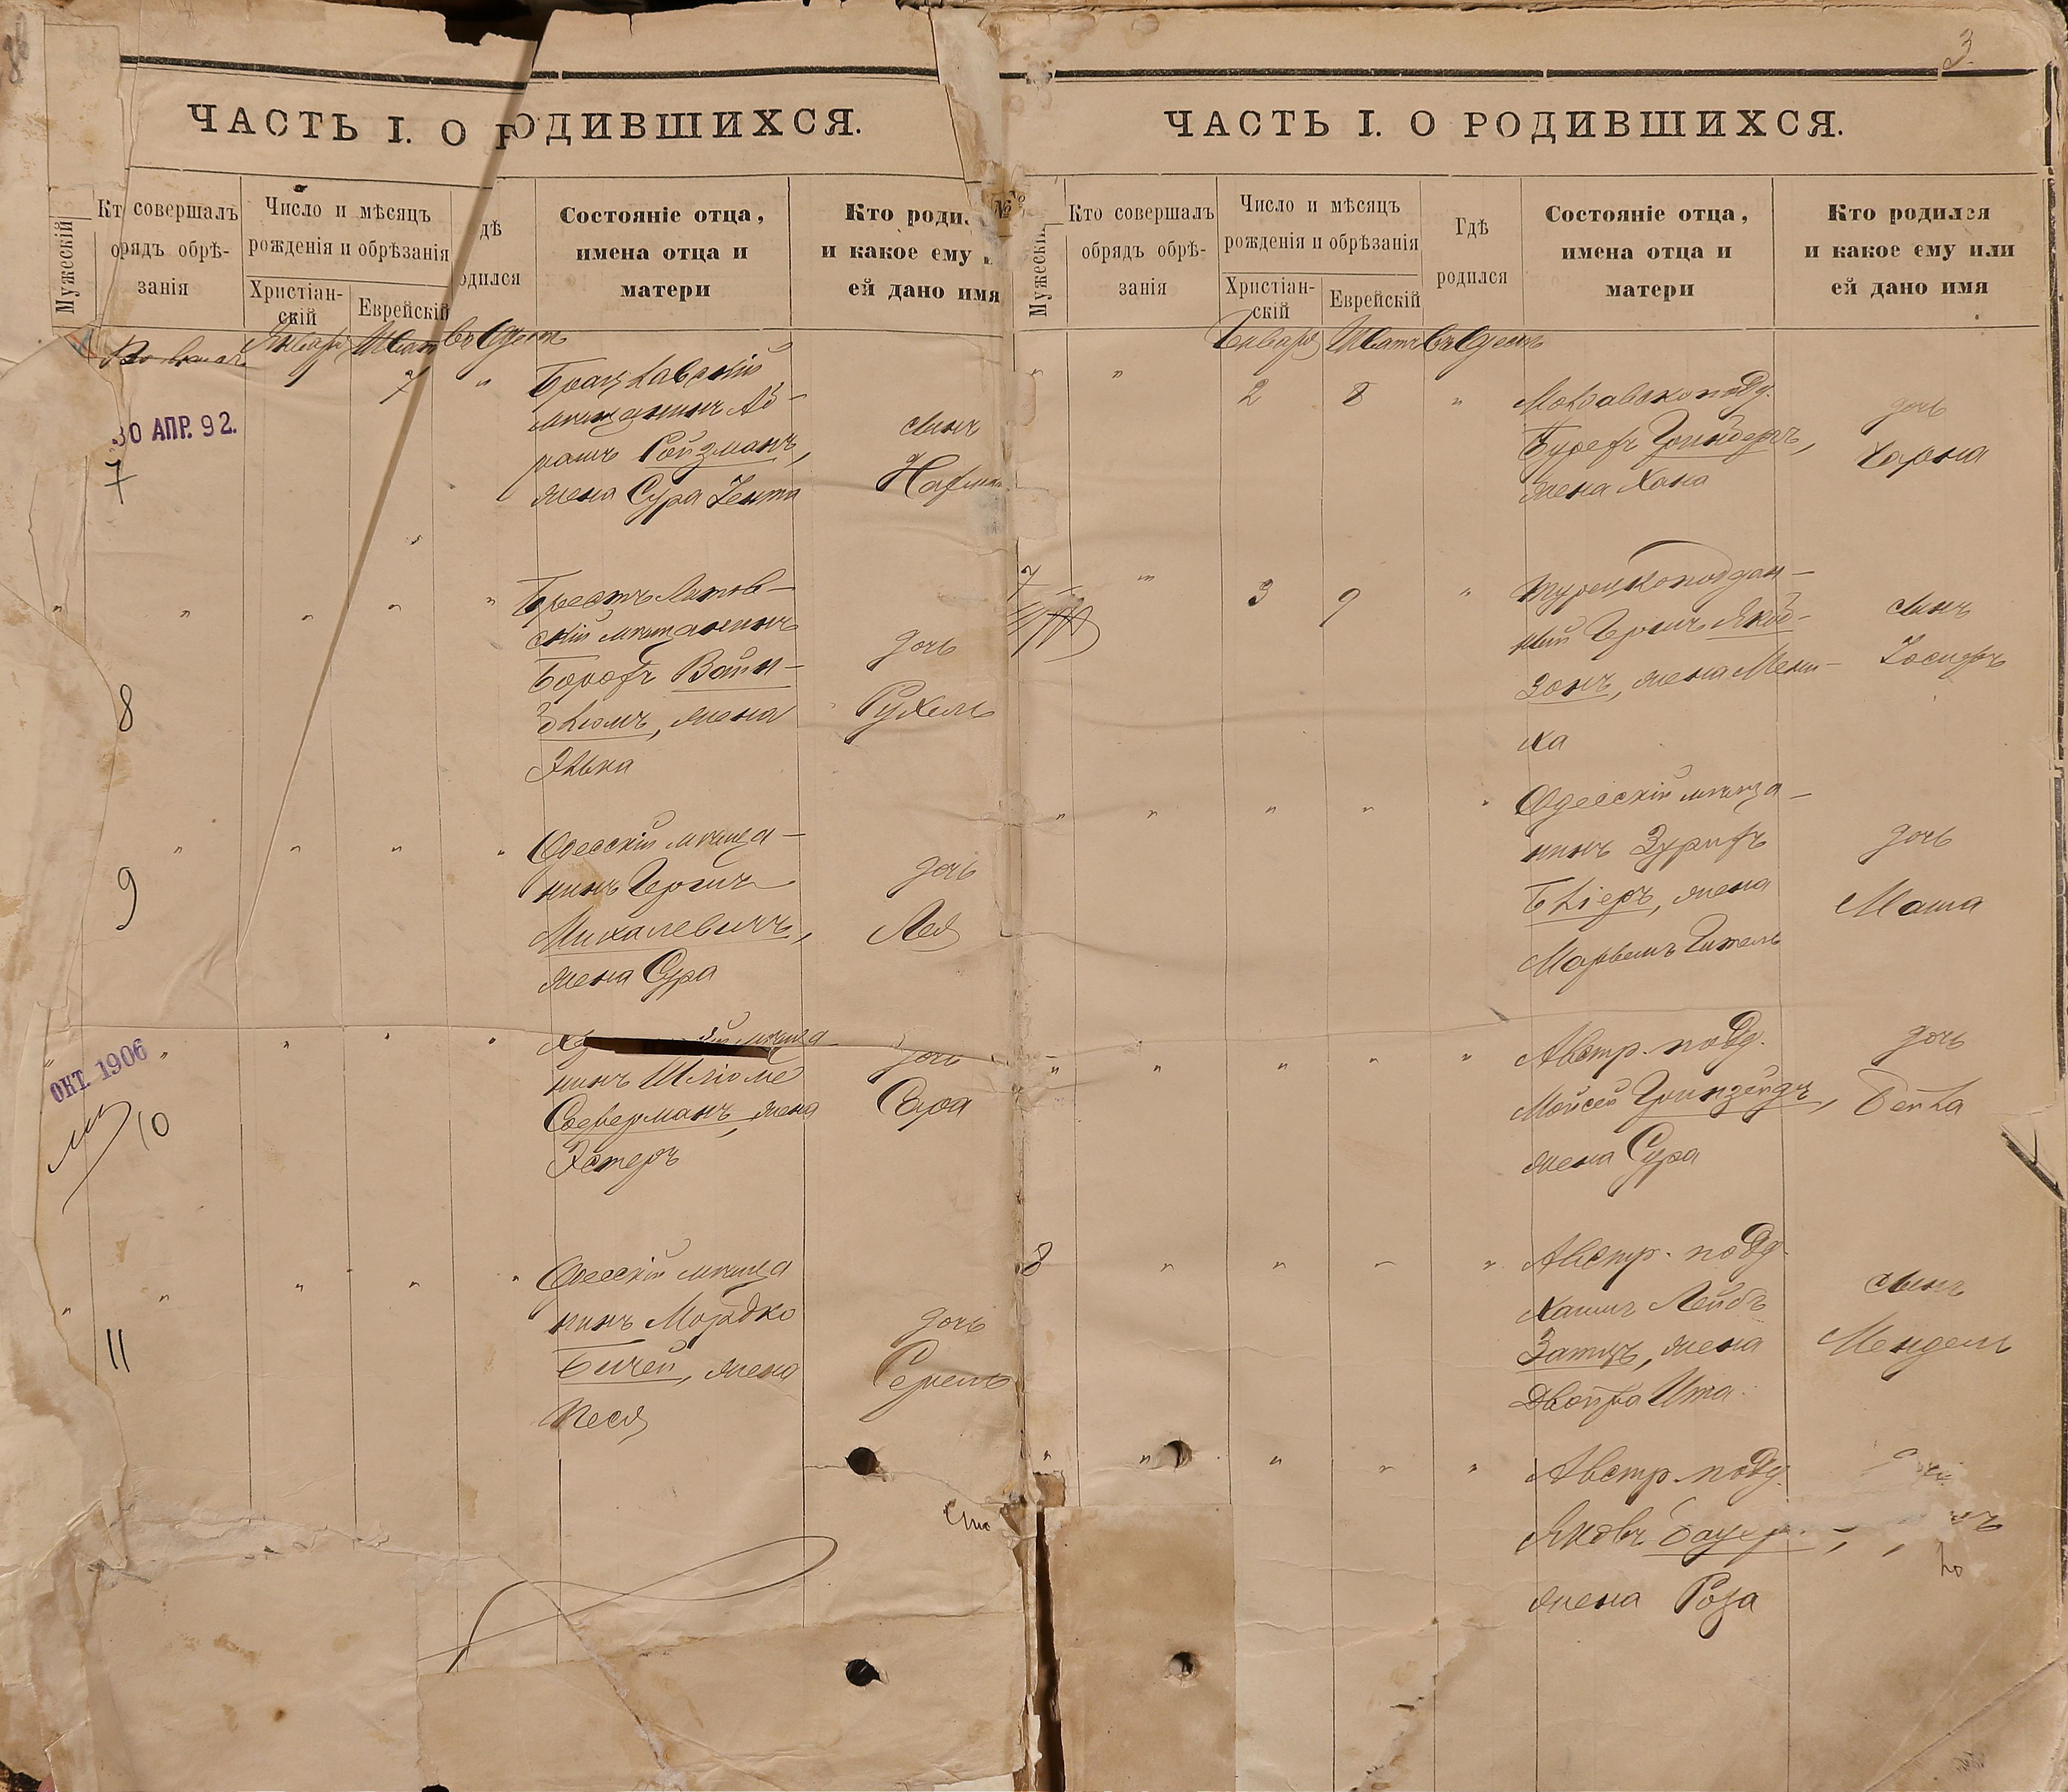 3.
ЧАСТЬ I. О РОДИВШИХСЯ.
Мужескій
Кт совершалъ
орядъ обрѣ-
занія
Число и мѣсяцъ
рожденія и обрѣзанія
Христіан-
скій
Еврейскій
дѣ
одился
Состояніе отца,
имена отца и
матери
Кто роди
и какое ему
ей дано имя
Январь
въ Одессѣ
7
"
Брацлавскій
мѣщанинъ Аб-
рамъ Ройзманъ,
жена Сура Зента
сынъ
30 АПР. 92.
7
Брестъ Литов-
скій мѣщанинъ
Борохъ Вайн-
блюмъ, жена
Элька
дочь
Рухель
8
Одесскій мѣща-
нинъ Гершъ
Михалевичъ,
жена Сура
дочь
Лея
9
мѣща-
нинъ Шлioме
Северманъ, жена
Эстеръ
дочь
Сара
ОКТ. 1906
10
Одесскій мѣща
нинъ Мордко
Бичей, жена
Песя
дочь
11
ЧАСТЬ I. О РОДИВШИХСЯ.
№
Мужескій
Кто совершалъ
обрядъ обрѣ-
занія
Число и мѣсяцъ
рожденія и обрѣзанія
Христіан-
скій
Еврейскій
Гдѣ
родился
Состояніе отца,
имена отца и
матери
Кто родился
и какое ему или
ей дано имя
Январь Шватъ въ Одессѣ
2 8 "
Молдавскоподд.
жена Хана
дочь
7
3 9 "
Турецкоподдан-
ный Гершъ Якоб-
зонъ, жена Мени-
ха
сынъ
Іосифъ
Одесскій мѣща-
нинъ Зурихъ
жена
дочь
Маша
Австр. подд.
Мойсей Гринзейдъ,
жена Сура
дочь
Бейла
8
Австр. подд.
Хаимъ Лейбъ
Затцъ, жена
Двойра Ита
сынъ
Мендель
Австр. подд.
Яковъ Бауеръ,
жена Роза